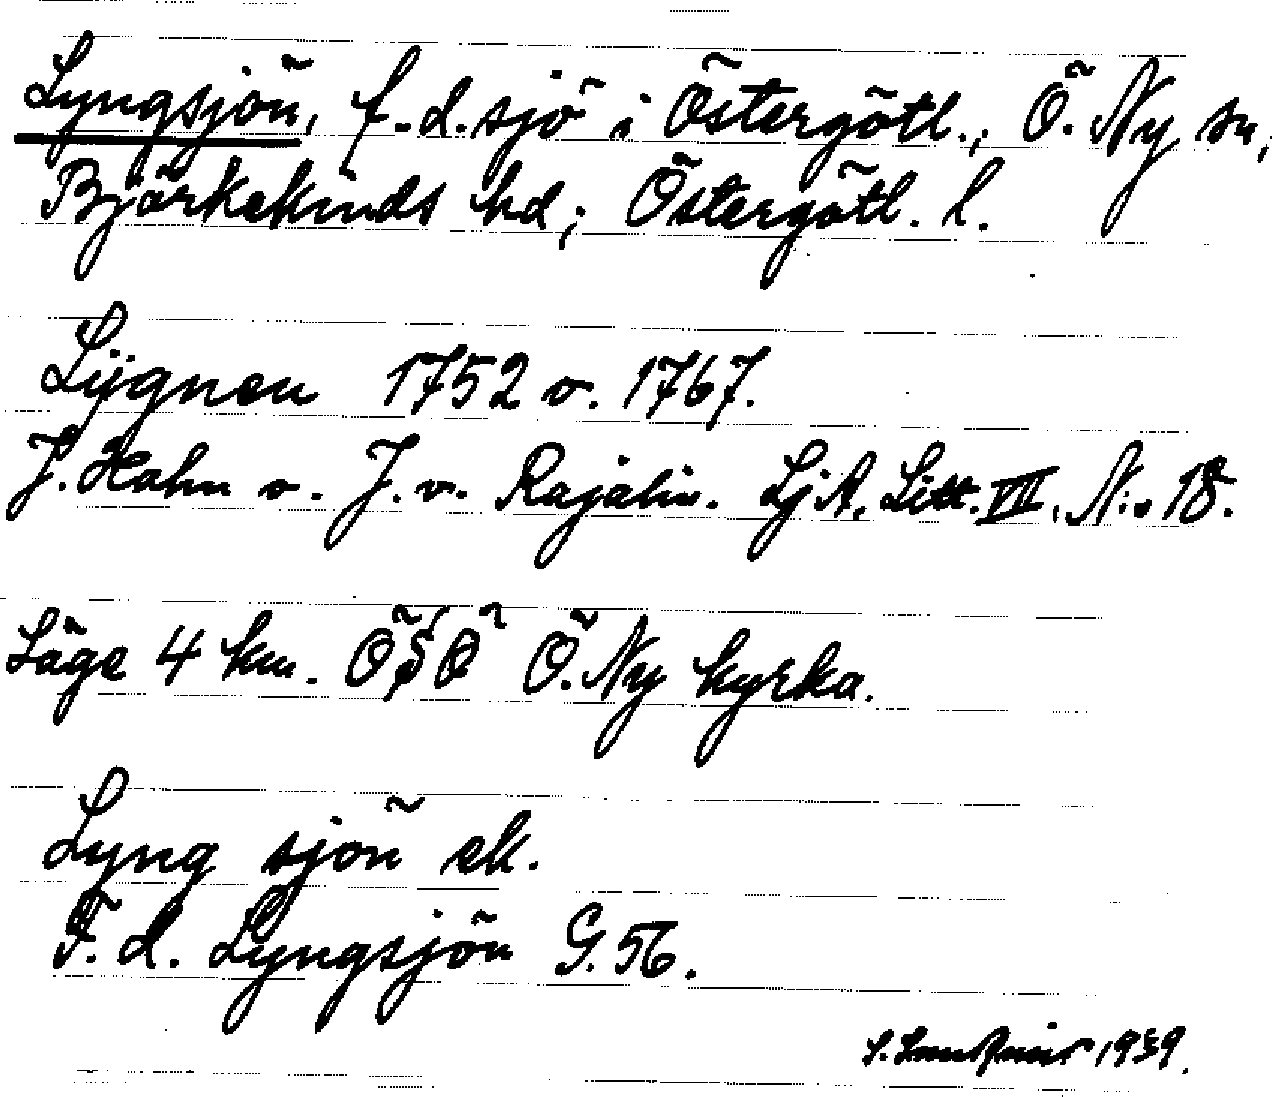 Lyngsjön, f.d. sjö i Östergötl.; Ö. Ny sn,
Björkekinds hd; Östergötl. l.
Lÿgnen 1752 o. 1767.
J. Hahn o. J. v. Rajalin. LjA. Litt. VII, N:o 18.
Läge 4 km. ÖSÖ Ö. Ny kyrka.
Lyng sjön ek.
F. d. Lyngsjön G. 56.
1939.